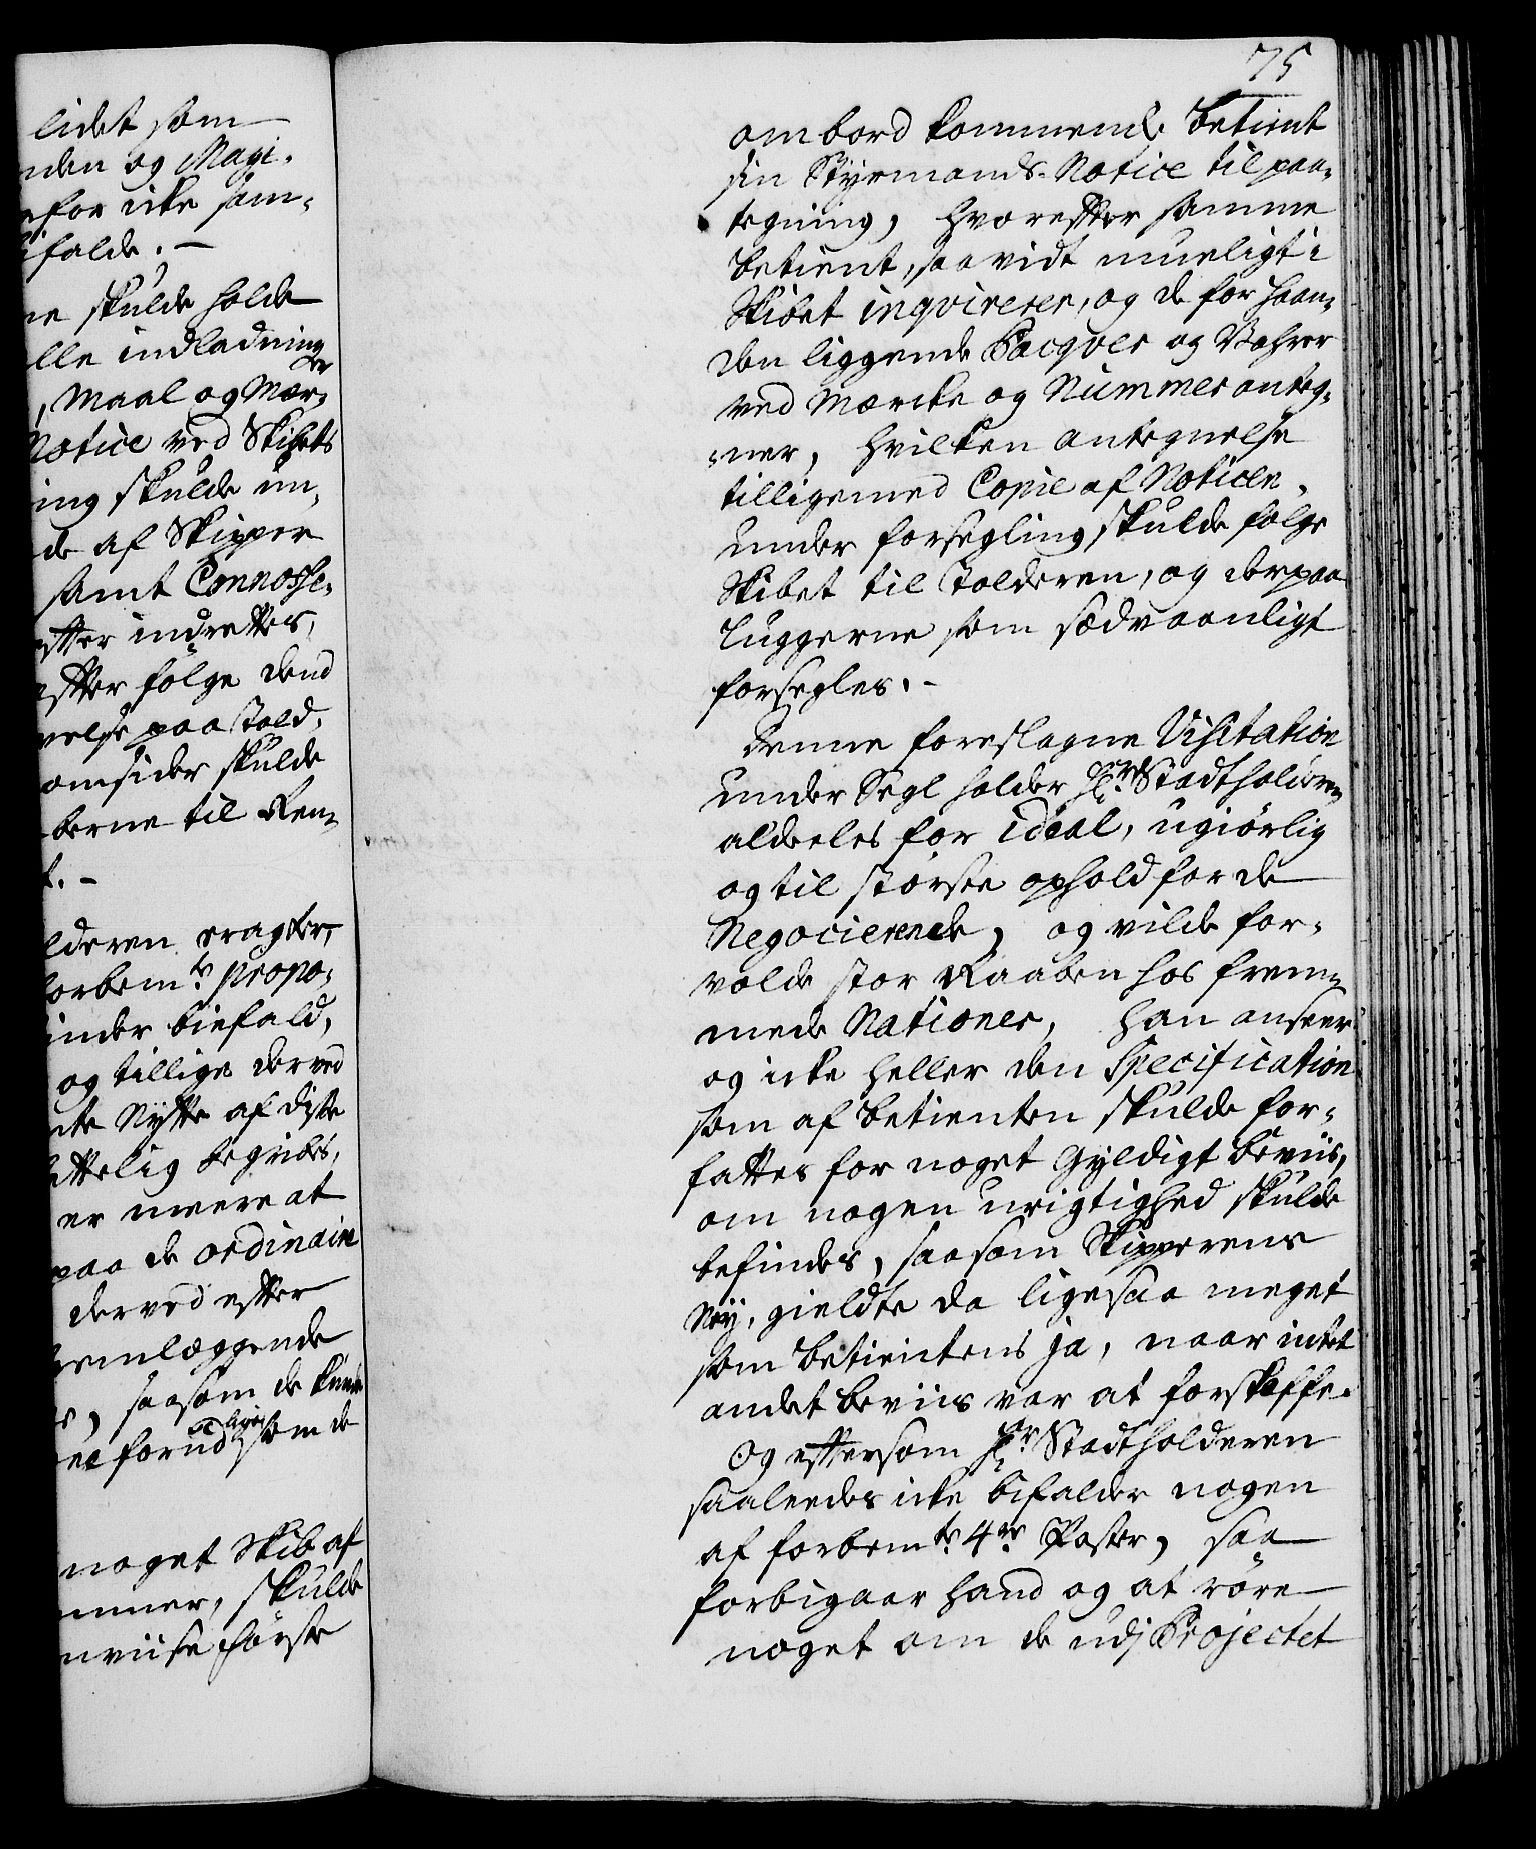 lidet som
nden og Magi-
efor icke sam-
ifalde. -
ne skulde holde
lle indladninger
, Maal og Mær-
Notice ved Skibets
ing skulde un-
de af Skipper
samt Connosse-
efter indrettes,
efter følge dend
velse paa Told-
omsider skulde
berne til Ren-
t. -
lderen eragter,
forbemte propo-
inder biefald,
og tillige derved
nte Nytte af diste
ttelig begribes,
er meere at
paa de ordinaire
derved efter
emlæggende
r, saasom de kunde
ne forud ligesom de
noget Skib af
mmer, skulde
nviise første
75
ombord kommende betient
sin Styrmands-Notice til paa-
tegning, hvorefter samme
betient, saavidt mueligt i
Skibet inqvirerer, og de for haan-
den liggende Pacqver og Vahrer
ved Mercke og Nummer anteg-
ner, hvilken antegnelse
tilligemed Copie af Noticen,
under forsegling skulde følge
Skibet til Tolderen, og derpaa
Luggerne som sædvaanligt
forsegles. -
Denne foreslagne Visitation
under Segl holder Hr. Stadtholderen
aldeeles for ideal, ugiørlig
og til største ophold for de
Negocierende, og vilde for-
volde stor Raaben hos frem-
mede Nationer, han anseer
og icke heller den Specification
som af betienten skulde for-
fattes for noget Gyldigt beviis,
om nogen urigtighed skulde
befindes, saasom Skipperens
Ney, gieldte da ligesaa meget
som betientens ja, naar intet
andet beviis var at forskaffe.
Og eftersom Hr. Stadtholderen
saaleedes icke bifalder nogen
af forbemte 4re Poster, saa
forbigaar hand og at røre
noget om de udj Projectet